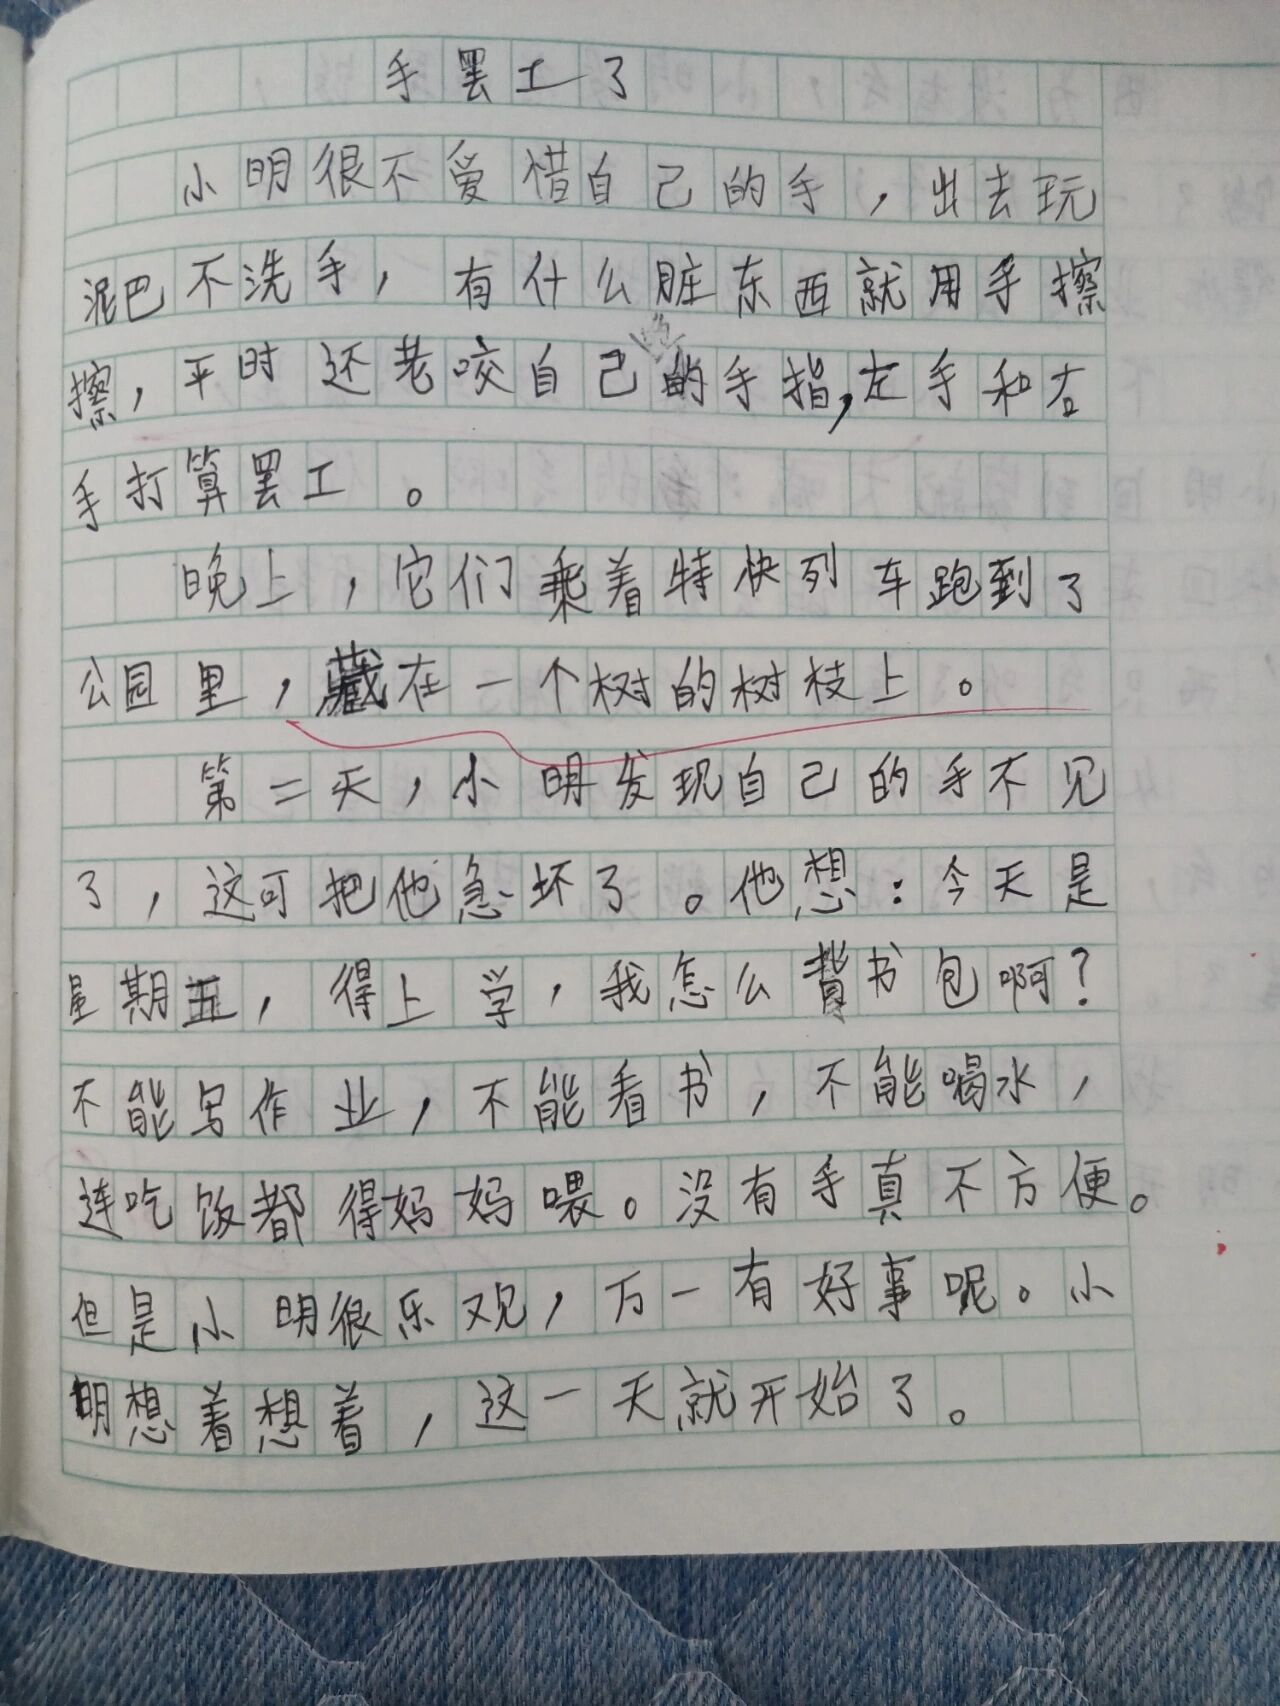 手罢工了
小明很不爱惜自己的手，出去玩
泥巴不洗手，有什么脏东西就用手擦
擦，平时还老咬自己的手指，左手和右
手打算罢工。
晚上，它们乘着特快列车跑到了
公园里，藏在一个树的树枝上。
第二天，小明发现自己的手不见
了，这可把他急坏了。他想：今天是
星期五，得上学，我怎么背书包啊？
不能写作业，不能看书，不能喝水，
连吃饭都得妈妈喂。没有手真不方便。
但是小明很乐观，万一有好事呢。小
明想着想着，这一天就开始了。